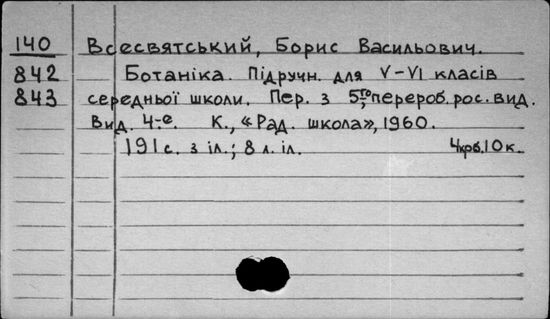 140 Всесвятський, Борис Васильович.
842 Ботаніка. Підручн. для V-VI класів
843 середньої школи. Пер. з 5го перероб. рос. вид.
Вид. 4-е. К., «Рад. школа», 1960.
191 с. з іл.; 8 л. іл. 4крб. 10 к.